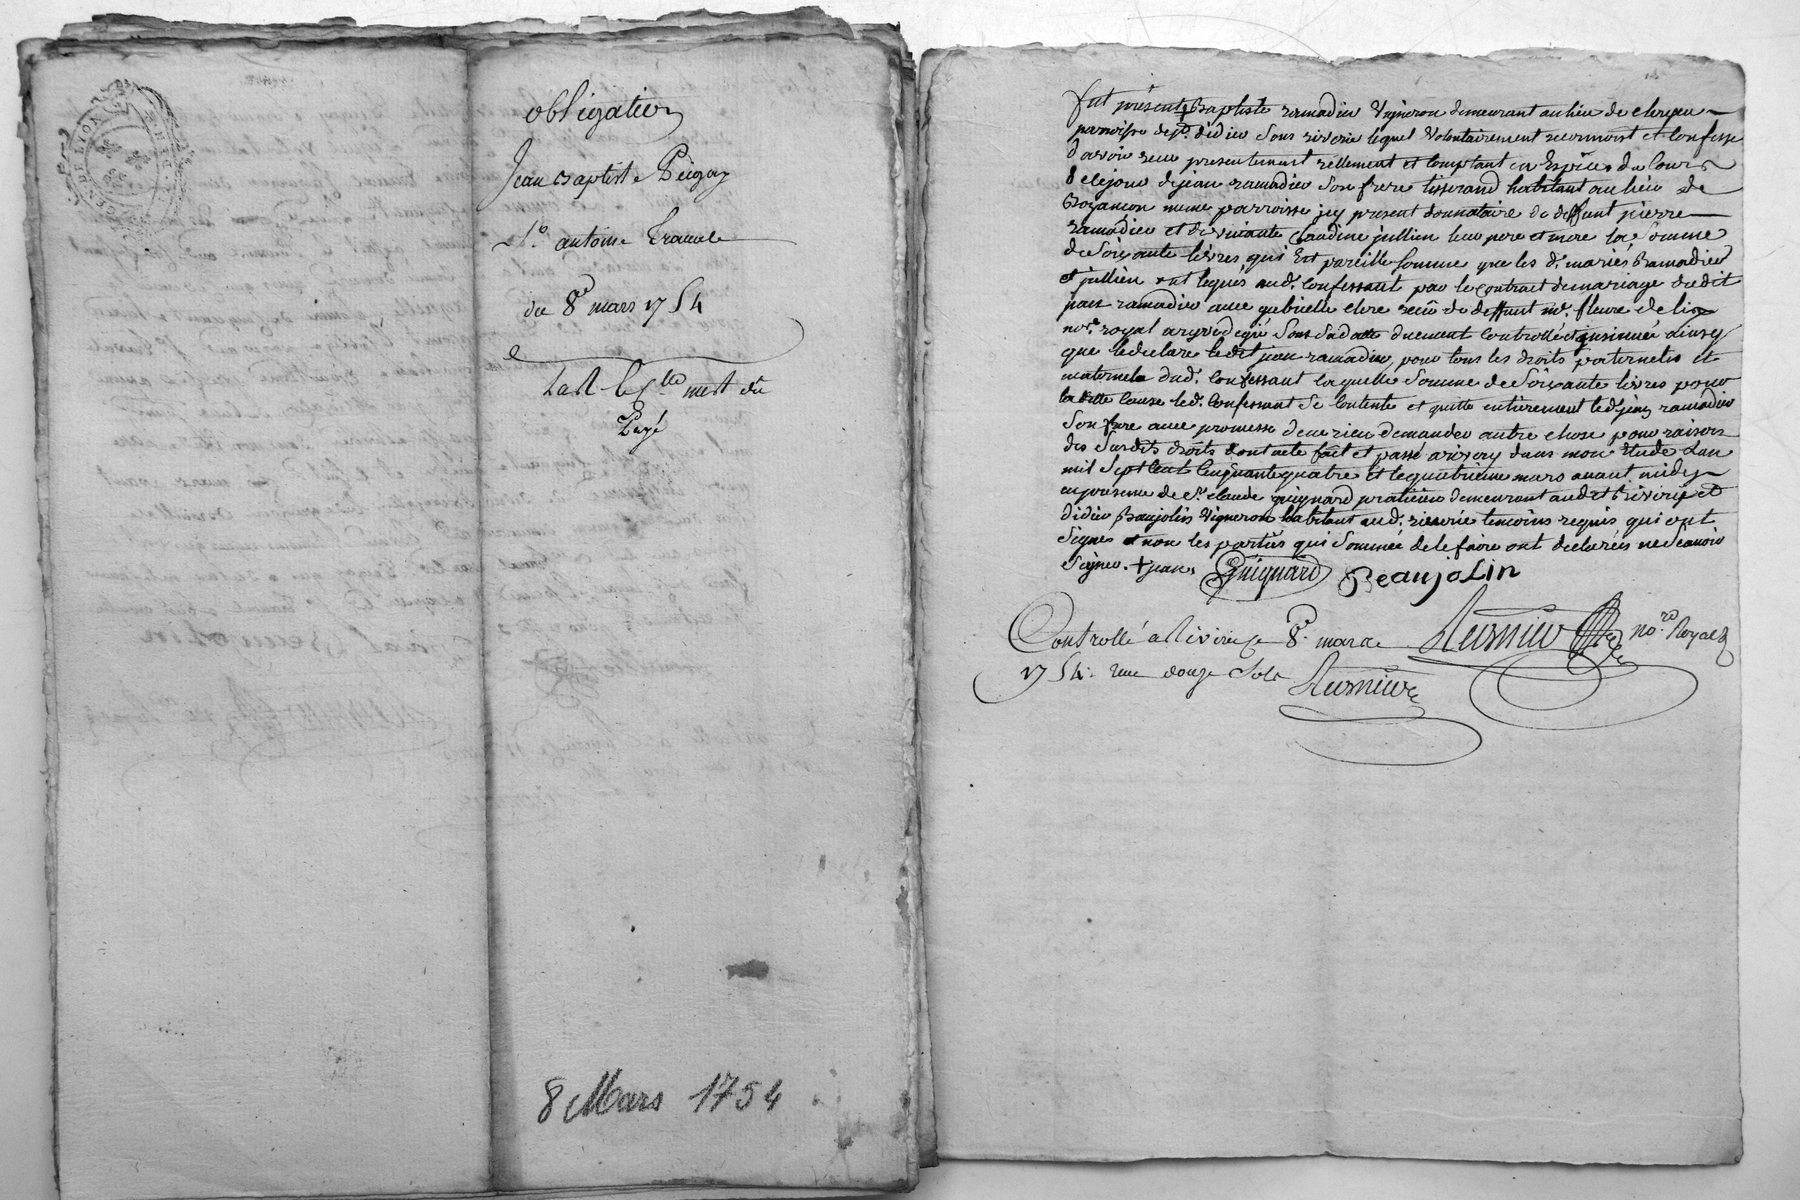 obligation
Jean Baptiste
St. antoine
du 8e mars 1754
Payé
8 Mars 1754
fut présent Baptiste ramadier Vigneron demeurant au lieu de
parroisse de st. didier sous riverie lequel Volontairement reconnoit et Confesse
d'avoir receu presentement reellement et Comptant en Espèces du Cours
de jean ramadier son frere tisserand habitant au lieu de
même parroisse icy present donnataire de deffunt pierre
ramadier et de vivante Claudine jullien leur pere et mere la Somme
de Soixante livres qui Est pareille somme que les d. mariés Ramadier
et jullien ont legués aud. Confessant par le Contrat de mariage dudit
jean ramadier avec gabrielle receu de deffunt me. fleure de lis
nore. royal sous sa datte duement Controllé et insinuée ainsy
que le declare ledit jean ramadier, pour tous les droits paternels et
maternels dud. Confessant laquelle Somme de Soixante livres pour
la ditte Cause led. Confessant Se Contente et quitte entierement led. jean ramadier
Son frere avec promesse de ne rien demander autre chose pour raison
des Susdits droits dont acte fait et passé a rivery dans mon Etude L'an
mil Sept Cent Cinquante quatre et le quatrieme mars avant midy
en presence de Sr. claude guignard praticien demeurant audit Riverie et
didier Beaujolin Vigneron habitant aud. riverie temoins requis qui ont
Signés et non les parties qui Sommée de le faire ont declarées ne Scavoir
Signer. + jean Guignard Beaujolin
Controllé a Riverie le 8e. mars nore. Royal
1754. receu douze Sols